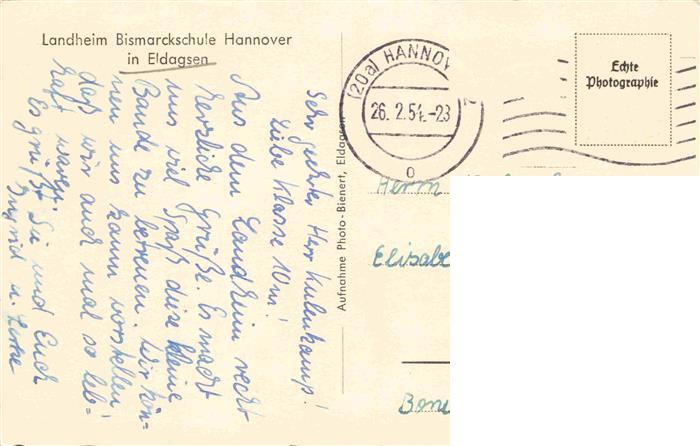 Landheim Bismarckschule Hannover
in Eldagsen
Sehr geehrter Herr Kulenkamp!
Liebe Klasse 10m!
Aus dem Landheim recht
herzliche Grüße. Es macht
uns viel Spaß diese kleine
Bande zu betreuen. Wir kön-
nen uns kaum vorstellen,
daß wir auch mal so leb-
haft waren.
Es grüßt Sie und Euch
Ingrid u.
Aufnahme Photo-Bienert, Eldagsen
(20a) HANNOV
26. 2.54.-23
Echte
Photographie
Herrn
Elisabe
Bon